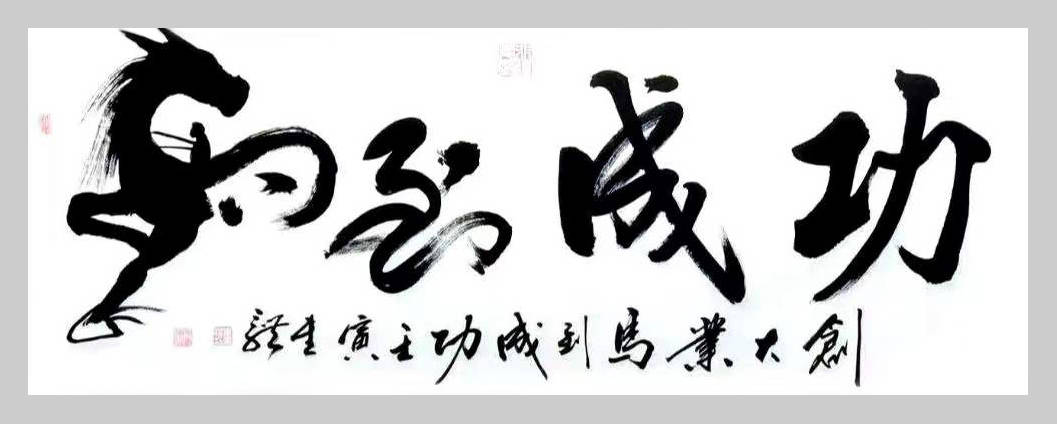 马到成功
創大業馬到成功壬寅